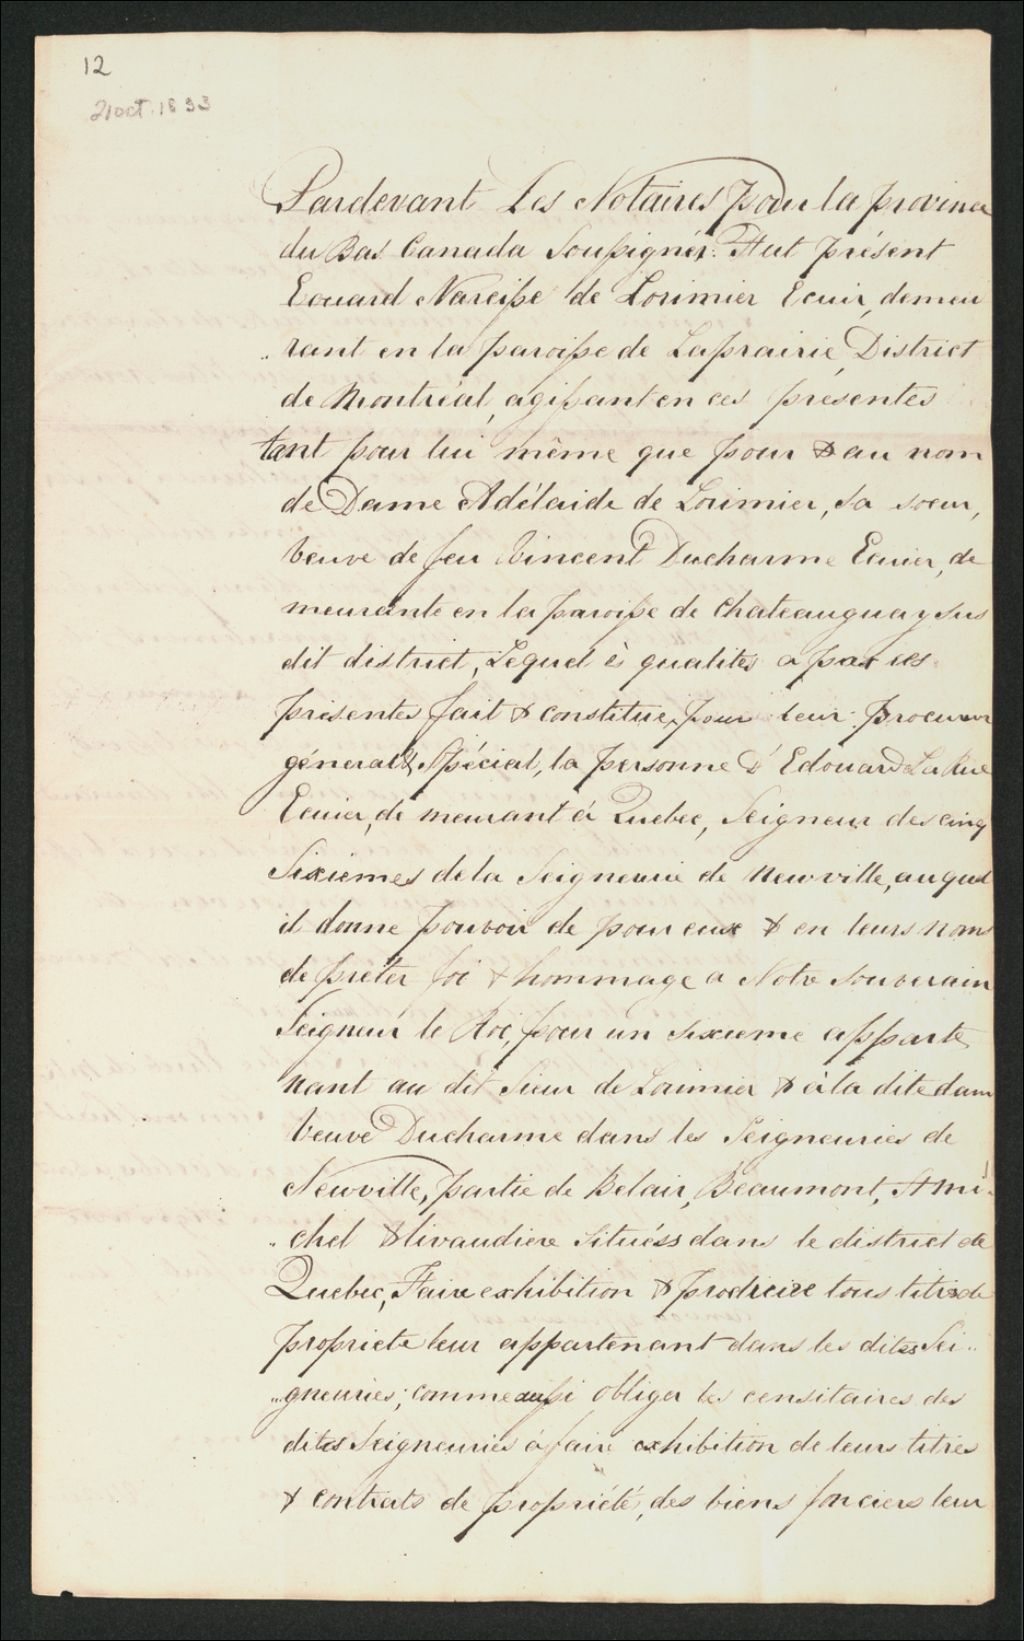 12
21 oct. 1833
Pardevant Les Notaires pour la province
du Bas Canada Soussignés. Fut présent
Edouard Narcisse de Lorimier Ecuier, demeu
„ rant en la paroisse de Laprairie, District
de Montréal, agissant en ces présentes
tant pour lui même que pour & au nom
de Dame Adélaide de Lorimier, sa soeur,
Veuve de feu Vincent Ducharme Ecuier, de
meurante en la paroisse de Chateauguay sus
dit district, Lequel ès qualités a par ces
présentes fait & constitué, pour leur procureur
géneral & Spécial, la personne d'Edouard La Rue
Ecuier, de meurant à Quebec, Seigneur des cinq
Sixiemes de la Seigneurie de Neuville, auquel
il donne pouvoir de pour eux & en leurs noms
de prêter foi & hommage a Notre Souverain
Seigneur le Roi, pour un sixieme apparte
nant au dit Sieur de Lorimier & à la dite dame
Veuve Ducharme dans les Seigneuries de
Neuville, partie de Belair, Beaumont, St Mi-
„ chel & livaudiere situées dans le district de
Quebec, Faire exhibition & produire tous titres de
propriete leur appartenant dans les dites Sei„
„gneuries; comme aussi obliger les censitaires des
dites Seigneuries à faire exhibition de leurs titres
& contrats de propriété, des biens fonciers leur